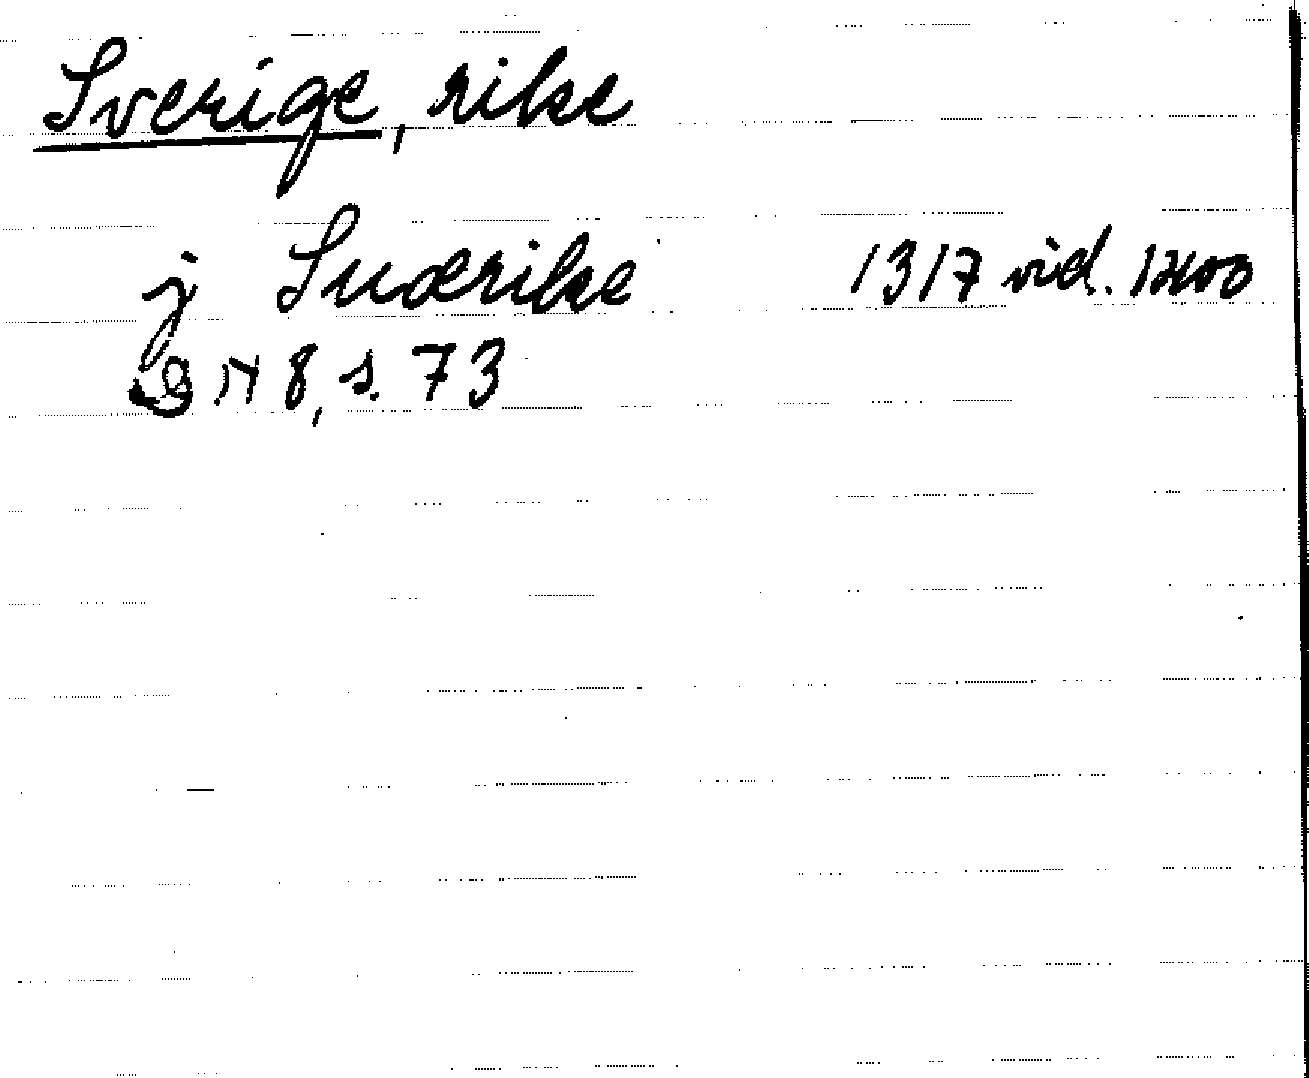 Sverige, rike
j Suærike 1317 vid. 1400
DN 8, s. 73